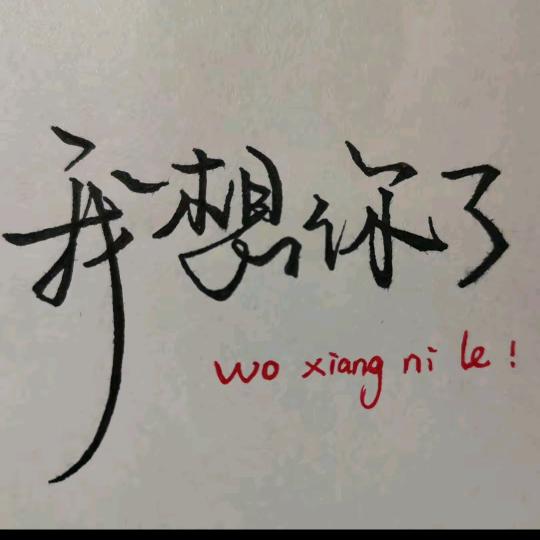 我想你了
wo xiang ni le!